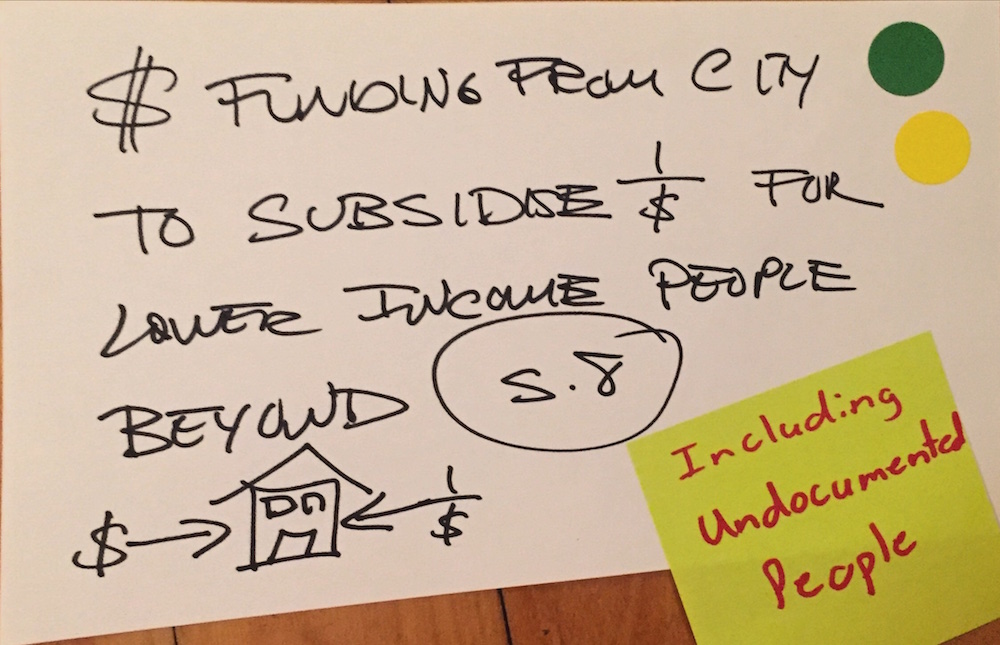 $ FUNDING FROM CITY
TO SUBSIDISE 1/$ FOR
LOWER INCOME PEOPLE
BEYOND S.8
$ 1/$
Including
Undocumented
People